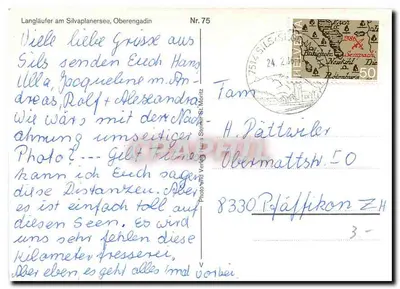 Langläufer am Silvaplanersee, Oberengadin
Nr. 75
Viele liebe Grüsse aus
Sils senden Euch Hans
Ulla, Jacqueline m. An-
dreas, Rolf + Alexandra
Wie wärs mit der Nach-
ahmung umseitiger
Photo? --- gibt
kann ich Euch sagen
diese Distanzen. Aber
es ist einfach toll auf
diesen Seen. Es wird
uns sehr fehlen diese
Kilometer fresserei.
Aber eben es geht alles mal vorbei.
HELVETIA
50
Fam.
H. Pättwiler
Obermattstr. 50
8330 Pfäffikon ZH
3 -